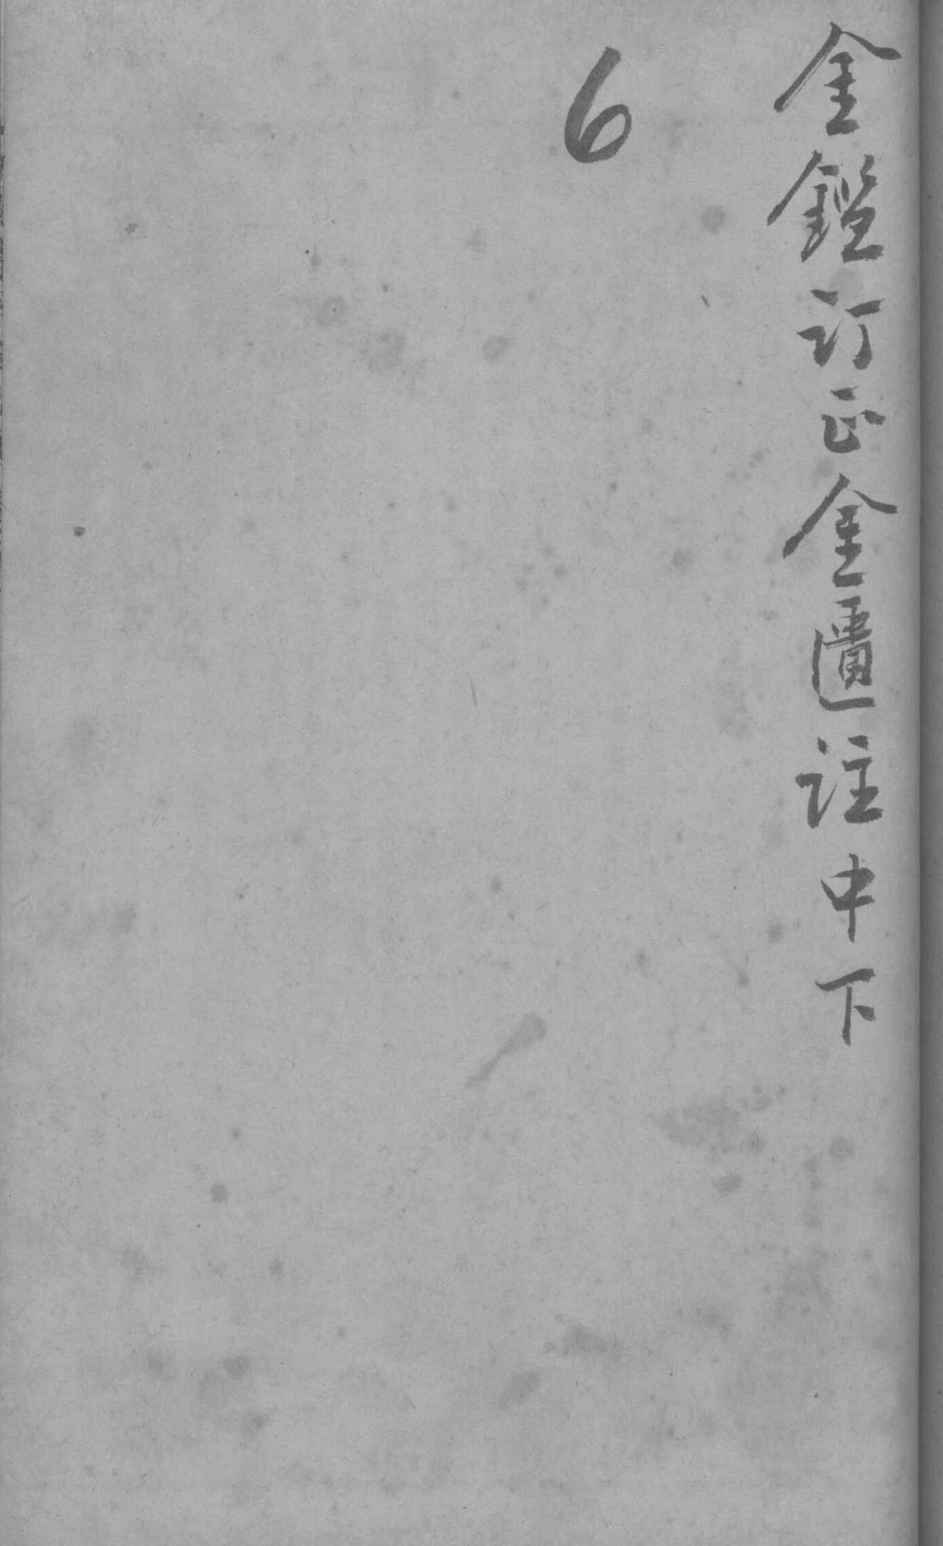 金鑑訂正金匱註中下
6